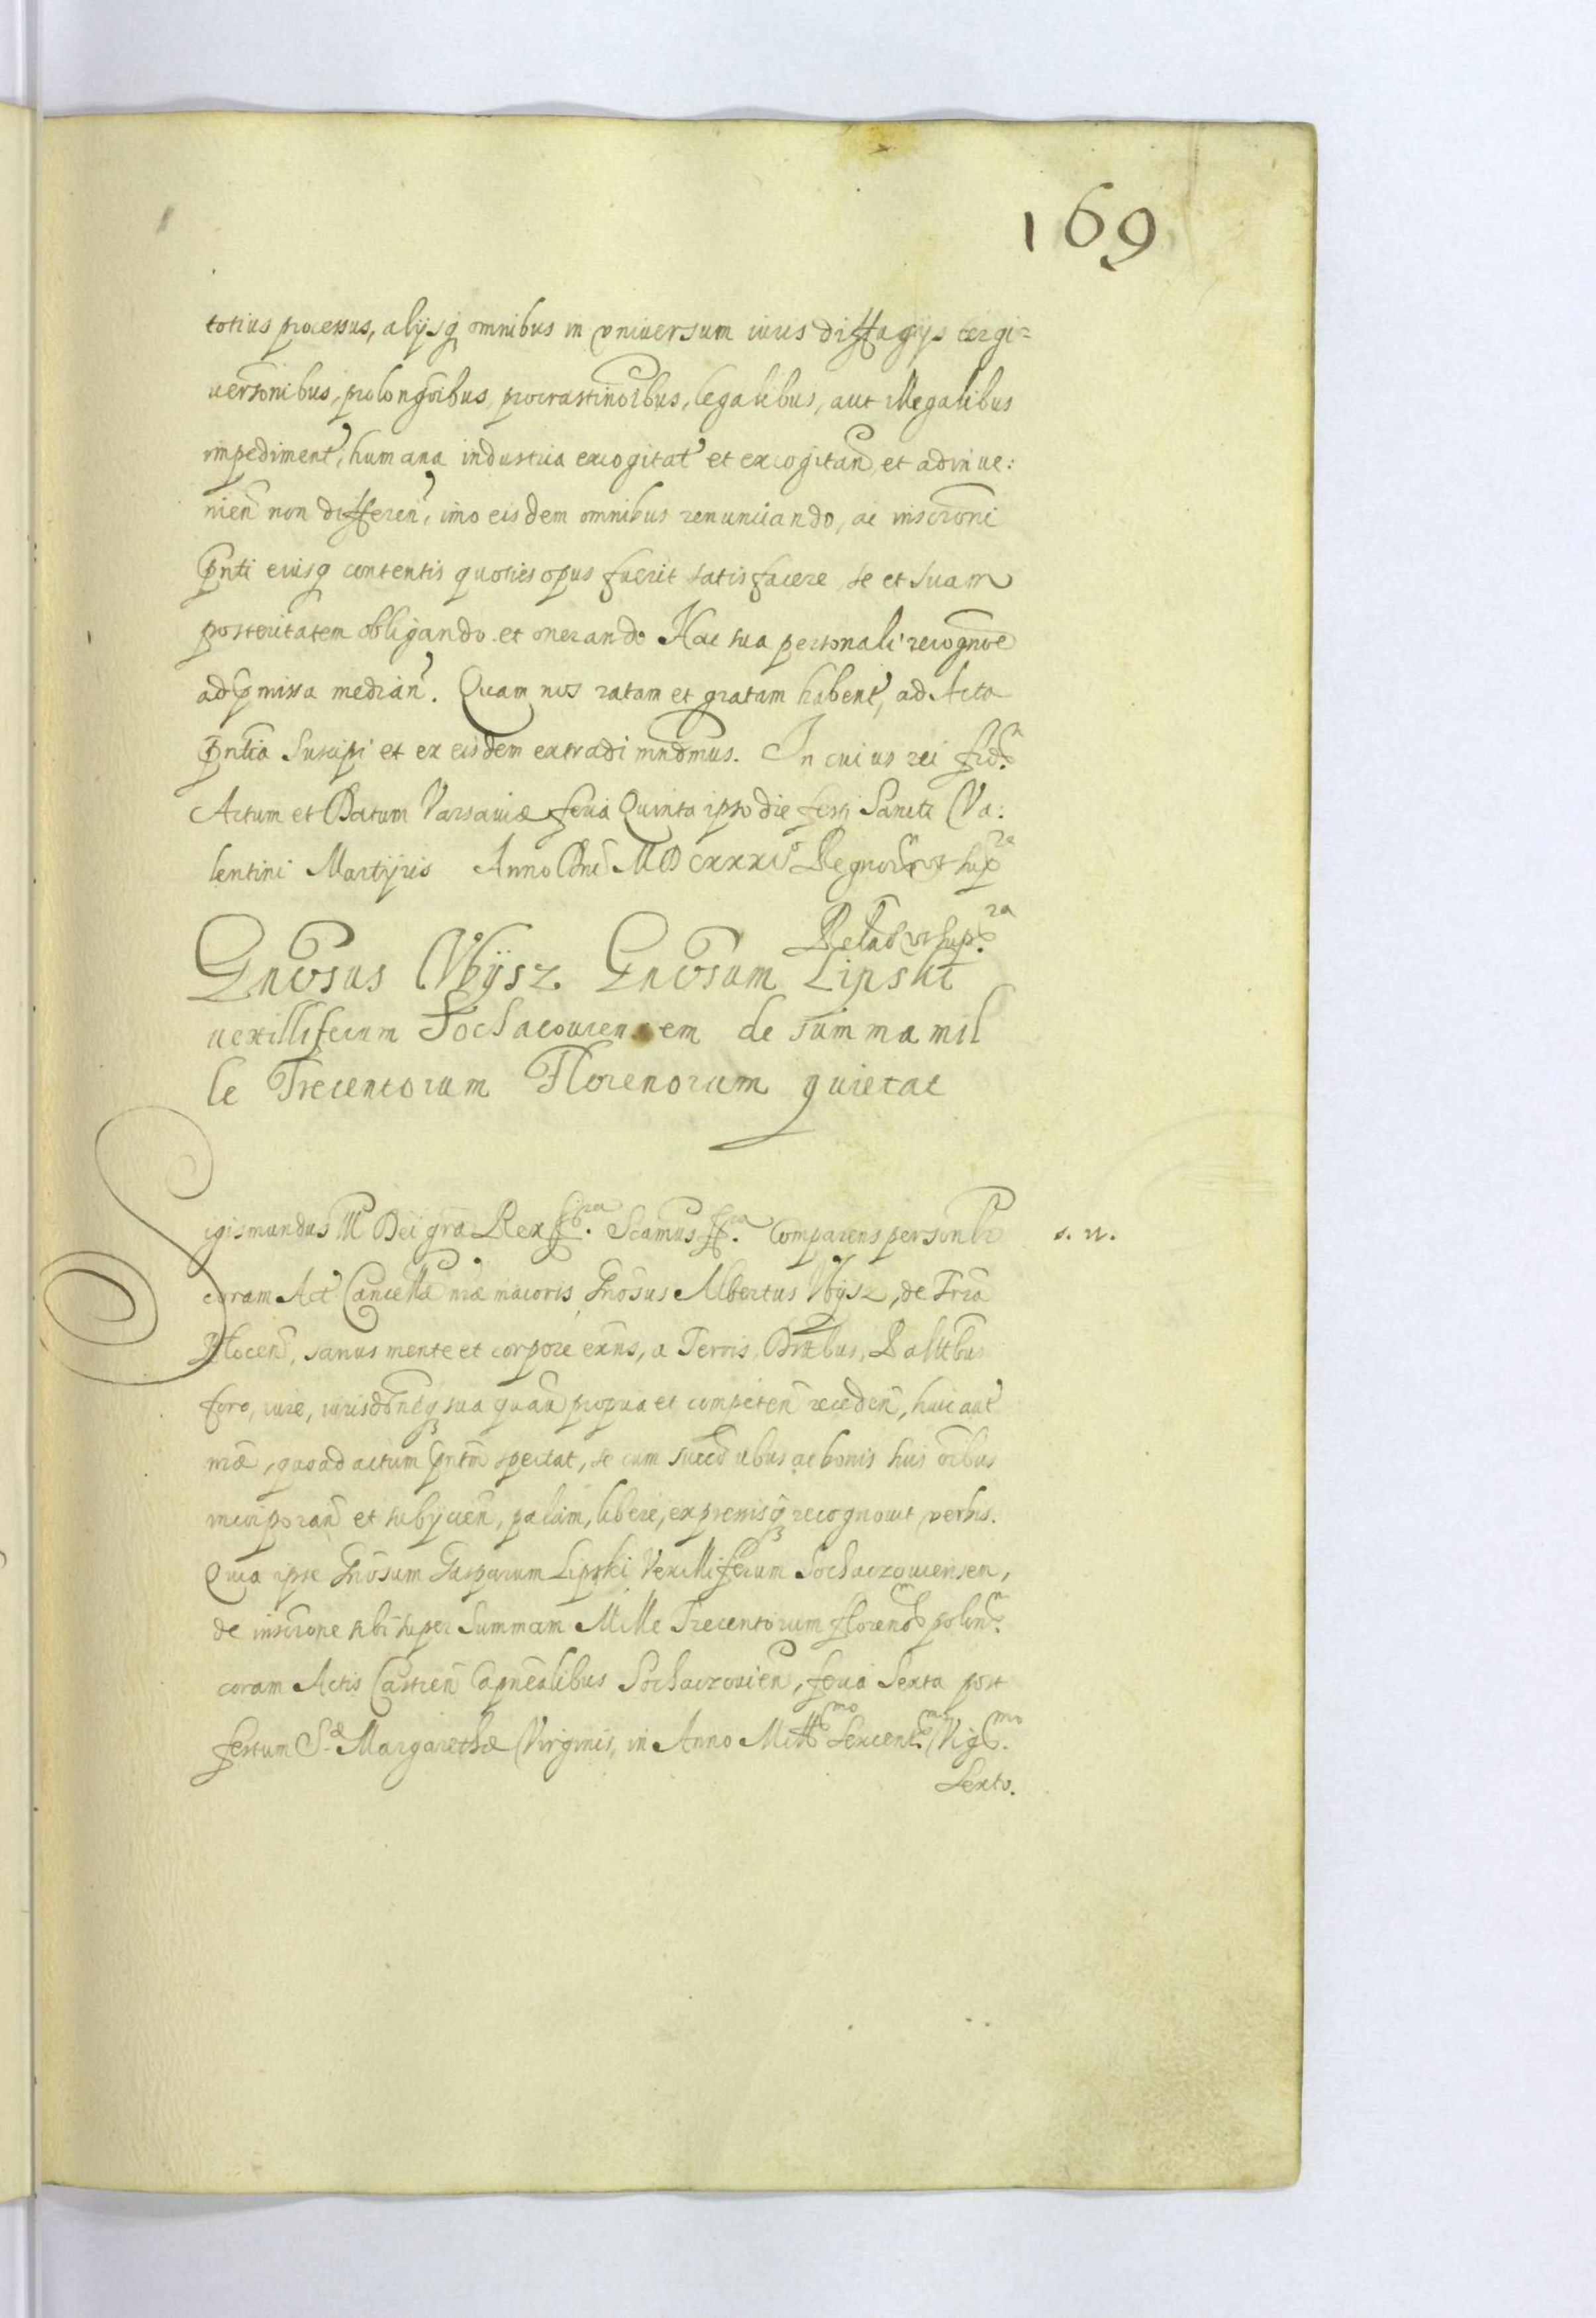 169
totius processus, alijsq̃ omnibus in vniuersum iuris diffugijs tergi=
uersōnibus, prolongōibus procrastinōibus, legalibus, aut illegalibus
impediment̃, humana industria excogitat̃ et excogitan̄, et adinue:
nien̄ non differen̄, imo eisdem omnibus renunciando, ac inscr̄oni
p̄nti eiusq̃ contentis quoties opus fuerit satisfacere, se et suam
posteritatem obligando et onerando Hac sua personali recogn̄oe
ad p̄missa median̄. Quam nos ratam et gratam habent̃, ad Acta
p̄ntia Suscipi et ex eisdem extradi mnd̄mus. In cuius rei fid̃.
Actum et Datum Varsauiæ feria Quinta ipso die festi Sancti Va:
lentini Martyris Anno Dn̄i Regnor̃ vt sup̃ra
Relāo vt sup̃ra.
Gn̄osus Wÿsz. Gn̄osum Lipski
vexilliferum Sochacouiensem de summa mil
le Trecentorum Florenorum quietat
Sigismundus III Dei gr̄a Rex ss̃ra. Sc̄amus ss̃ra. Comparens personlr̃ s. n.
coram Act̃ Cancell̄a n̄ræ maioris Gn̄osus Albertus Wÿsz, de Tr̄ra
Plocen̄, sanus mente et corpore ex̄ns, a Terris, Palltibus
foro, iure, iurisd̄oneq̃ sua quāuis propria et competen̄ receden̄, huic aut̃
n̄ræ, quoad actum p̄ntm̄ spectat, se cum succ̄oribus ac bonis suis ōibus
incorporan̄ et subijcien̄, palam, libere, expressisq̃ recognouit verbis.
Quia ipse Gn̄osum Gasparum Lipski Vexilliferum Sochaczouiensem,
de inscr̄one sibi super Summam Mille Trecentorum floreno℞ polon̄.
coram Actis Castren̄ Cap̄nealibus Sochaczouien̄, feria Sexta post
festum S. Margarethæ Virginis, in Anno Mill̃mo Sexcent̃mo Vig̃mo.
Sexto.